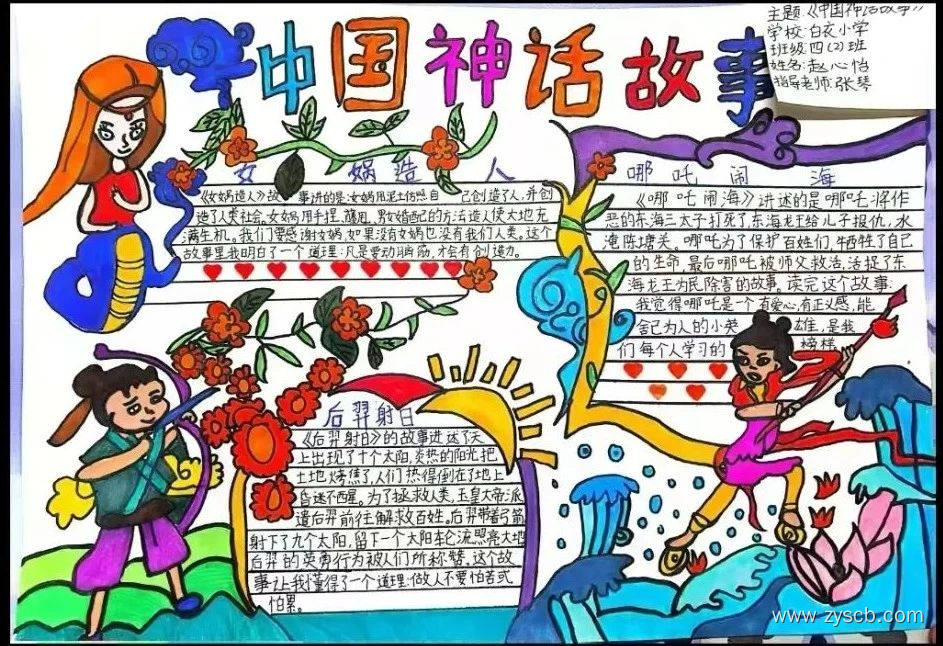 中国神话故事
主题:《中国神话故事》
学校:白衣小学
班级:四(2)班
姓名:赵心怡
指导老师:张琴
女娲造人
《女娲造人》故事讲的是:女娲用泥土仿照自己创造了人,并创
造了人类社会,女娲用手捏、藤甩、男女婚配的方法造人使大地充
满生机。我们要感谢女娲,如果没有女娲也没有我们人类。这个
故事里我明白了一个道理:凡是要动脑筋,才会有创造力。
哪吒闹海
《哪吒闹海》讲述的是哪吒将作
恶的东海三太子打死了,东海龙王给儿子报仇,水
淹陈塘关。哪吒为了保护百姓们,牺牲了自己
的生命,最后哪吒被师父救活,活捉了东
海龙王为民除害的故事。读完这个故事
我觉得哪吒是一个有爱心,有正义感,能
舍己为人的小英雄,是我
们每个人学习的榜样
后羿射日
《后羿射日》的故事讲述了天
上出现了十个太阳,炎热的阳光把
土地烤焦了,人们热得倒在了地上
昏迷不醒。为了拯救人类,玉皇大帝派
遣后羿前往解救百姓。后羿带着弓箭
射下了九个太阳,留下一个太阳轮流照亮大地
后羿的英勇行为被人们所称赞。这个故
事让我懂得了一个道理:做人不要怕苦或
怕累。
www.zyscb.com